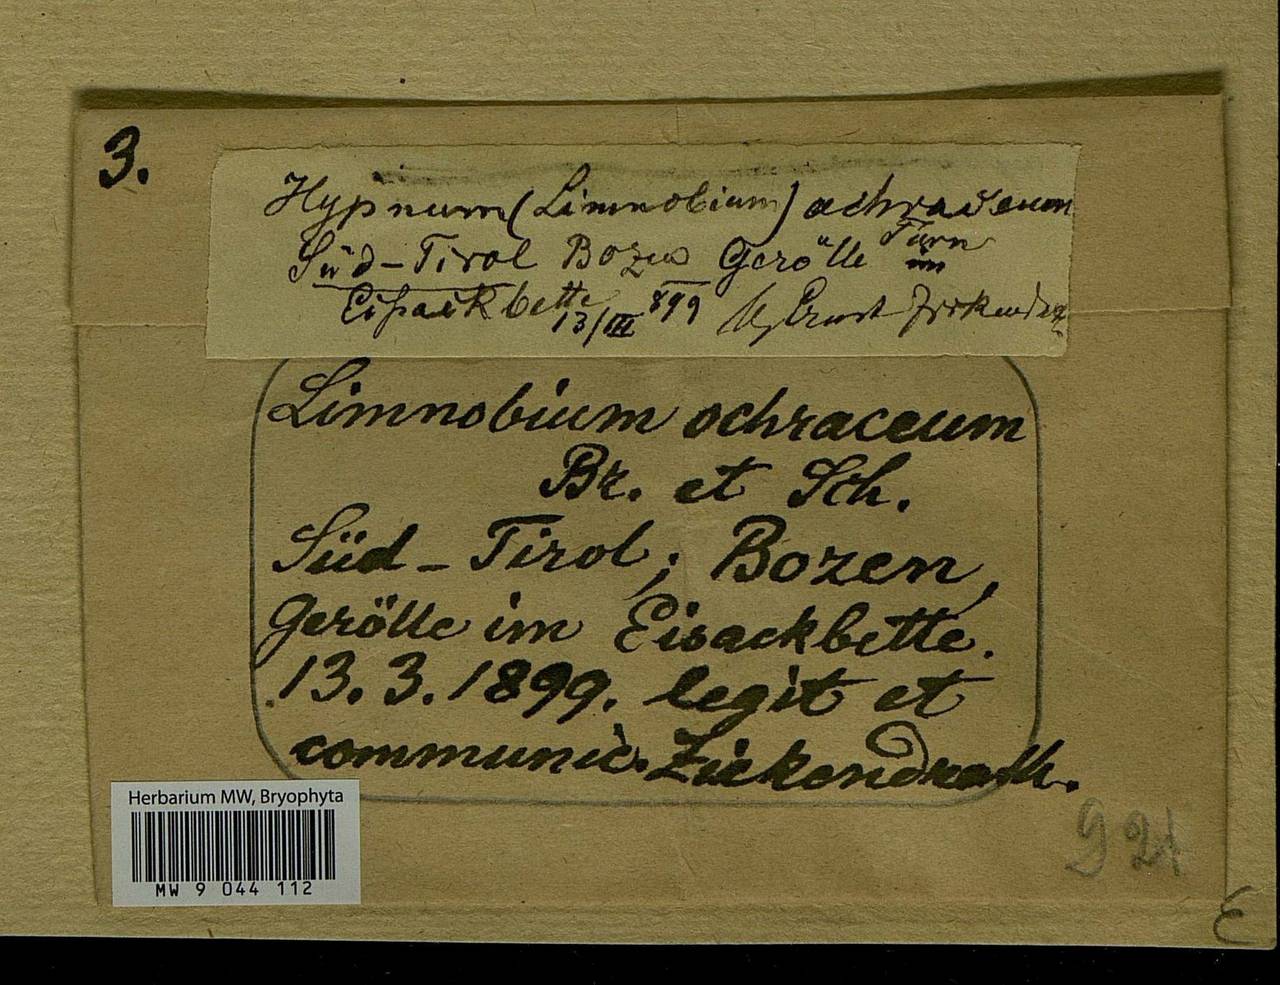 3.
Hypnum (Limnobium) ochraceum
Süd-Tirol Bozen Gerölle im
Eisackbette 13/III 899 Ernst Zickendr
Limnobium ochraceum
Br. et Sch.
Süd-Tirol; Bozen,
Gerölle im Eisackbette.
13. 3. 1899. legit et
communic. Zickendrath.
Herbarium MW, Bryophyta
MW 9 044 112
921
E